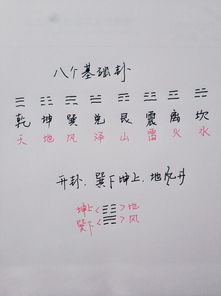 八个基础卦
乾 坤 巽 兑 艮 震 离 坎
天 地 风 泽 山 雷 火 水
升卦.巽下坤上.地风升
坤上< >地
巽下< >风